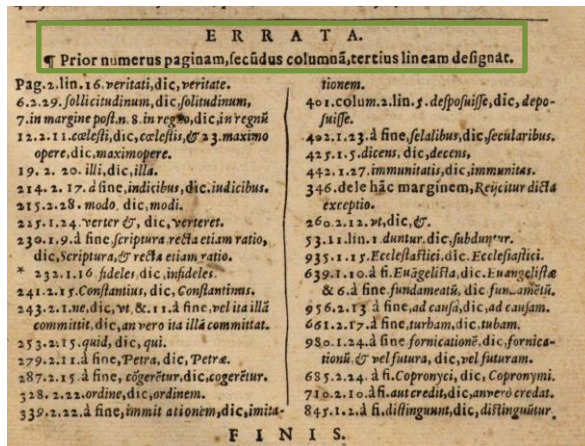 ERRATA.
¶ Prior numerus paginam, secũdus columnã, tertius lineam designat.
Pag.2.lin.16.veritati, dic, veritate.
6.2.29. sollicitudinum, dic, solitudinum,
7.in margine post.n.8.in regno, dic, in regnũ
12.2.11.cœlesti, dic, cœlestis, & 23.maximo
opere, dic, maximopere.
19. 2. 20. illi, dic, illa.
214.2.17. à fine, indicibus, dic. iudicibus.
215.2.28. modo, dic, modi.
225.1.24. verter &, dic, verteret.
230.1.9. à fine, scriptura recta etiam ratio,
dic, Scriptura, & recta etiam ratio.
* 232.1.16. fideles, dic, infideles.
241.2.15. Constantius, dic, Constantinus.
243.2.1.ne, dic, vt, &.11.à fine, vel ita illã
committit, dic, an vero ita illã committat.
253.2.15. quid, dic, qui.
279.2.11.à fine, Petra, dic, Petræ.
287.2.15.à fine, cõgerẽtur, dic, cogerẽtur.
328.2.22.ordine, dic, ordinem.
339.2.22.à fine, immit ationem, dic, imita-
tionem.
401.colum.2.lin.5. desposuisse, dic, depo-
suisse.
402.1.23.à fine, selalibus, dic, secularibus.
425.1.5. dicens, dic, decens,
442.1.27. immunitatis, dic, immunitas.
346.dele hãc marginem, Reijcitur dicta
exceptio.
260.2.12.vt, dic, &.
53.11.lin.1.duntur.dic, subduntur.
935.1.15. Ecclestastici, dic, Ecclesiastici.
639.1.10.à fi. Euãgelista, dic. Euangelistæ
& 6.à fine. fundameatũ, dic fundamẽtũ.
956.2.13 à fine, ad causã, dic, ad causam.
661.2.17.à fine, turbam, dic. tubam.
980.1.24.à fine fornicationẽ, dic, fornica-
tionũ, & vel futura, dic, vel futuram.
685.2.24. à fi. Copronyci, dic, Copronymi.
710.2.10.à fi.aut credit, dic, an verò credat.
845.1.2.à fi, distingunt, dic, distinguũtur.
FINIS.